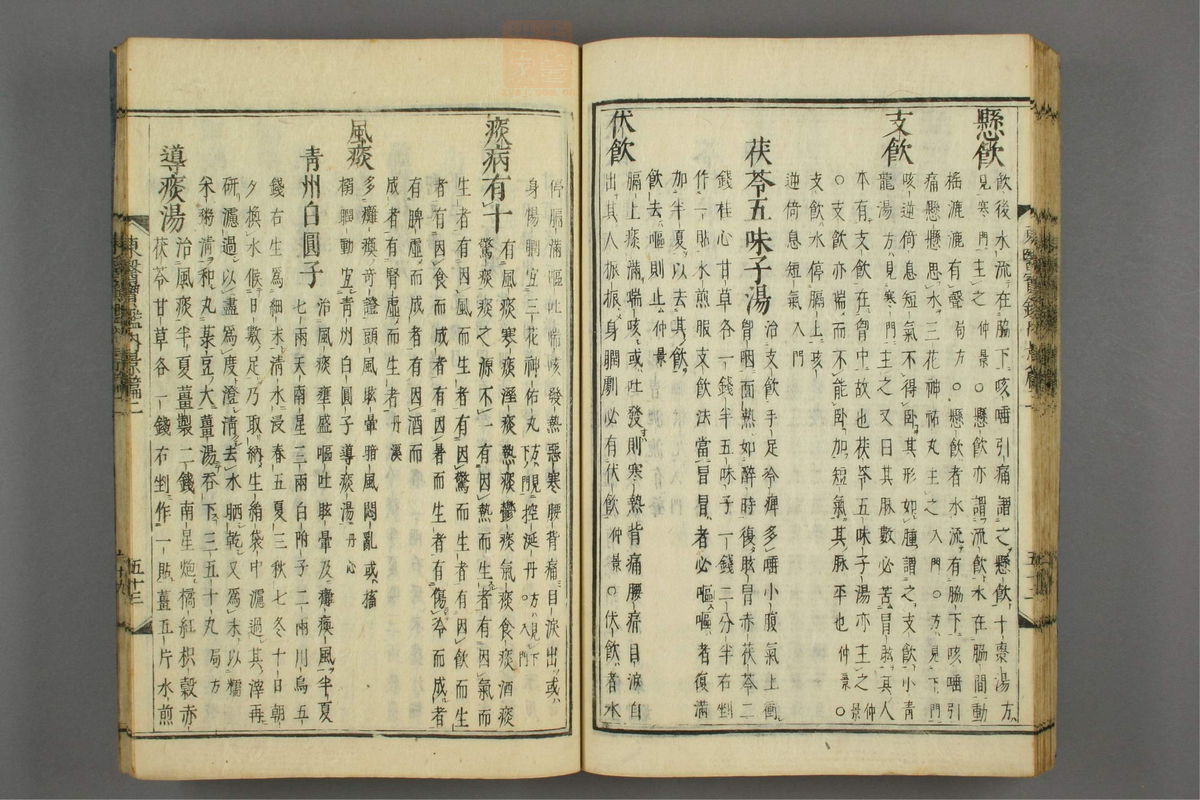 懸飮
飮後水流在脇下咳唾引痛謂之懸飮十棗湯方
見寒門主之仲景○懸飮亦謂流飮水在脇間動
搖漉漉有聲局方○懸飮者水流在脇下咳唾引
痛懸懸思水三花神祐丸主之入門○方見下門
支飮
咳逆倚息短氣不得臥其形如腫謂之支飮小靑
龍湯方見寒門主之又曰其脉數必苦冒眩其人
本有支飮在胷中故也茯苓五味子湯亦主之仲景
○支飮亦喘而不能臥加短氣其脉平也仲景○
支飮水停膈上咳
逆倚息短氣入門
茯苓五味子湯
治支飮手足冷痺多唾小腹氣上衝
胷咽面熱如醉時復眩冒赤茯苓二
錢桂心甘草各一錢半五味子一錢二分半右剉
作一貼水煎服支飮法當冒冒者必嘔嘔者復滿
加半夏以去其飮
飮去嘔則止仲景
伏飮
膈上痰滿喘咳或吐發則寒熱背痛腰痛目淚自
出其人振振身瞤劇必有伏飮仲景○伏飮者水
停膈滿嘔吐喘咳發熱惡寒腰背痛目淚出或
身惕瞤宜三花神佑丸方見下門控涎丹方見下○入門
痰病有十
有風痰寒痰濕痰熱痰鬱痰氣痰食痰酒痰
驚痰痰之源不一有因熱而生者有因氣而
生者有因風而生者有因驚而生者有因飮而生
者有因食而成者有因暑而生者有傷冷而成者
有脾虛而成者有因酒而
成者有腎虛而生者丹溪
風痰
多癱瘓奇證頭風眩暈暗風悶亂或搐
搦瞤動宜靑州白圓子導痰湯丹心
靑州白圓子
治風痰壅盛嘔吐眩暈及癱瘓風半夏
七兩天南星三兩白附子二兩川烏五
錢右生爲細末淸水浸春五夏三秋七冬十日朝
夕換水候日數足乃取納生絹袋中濾過其滓再
硏濾過以盡爲度澄淸去水晒乾又爲末以糯
米粥淸和丸菉豆大薑湯呑下三五十丸局方
導痰湯
治風痰半夏薑製二錢南星炮橘紅枳殼赤
茯苓甘草各一錢右剉作一貼薑五片水煎